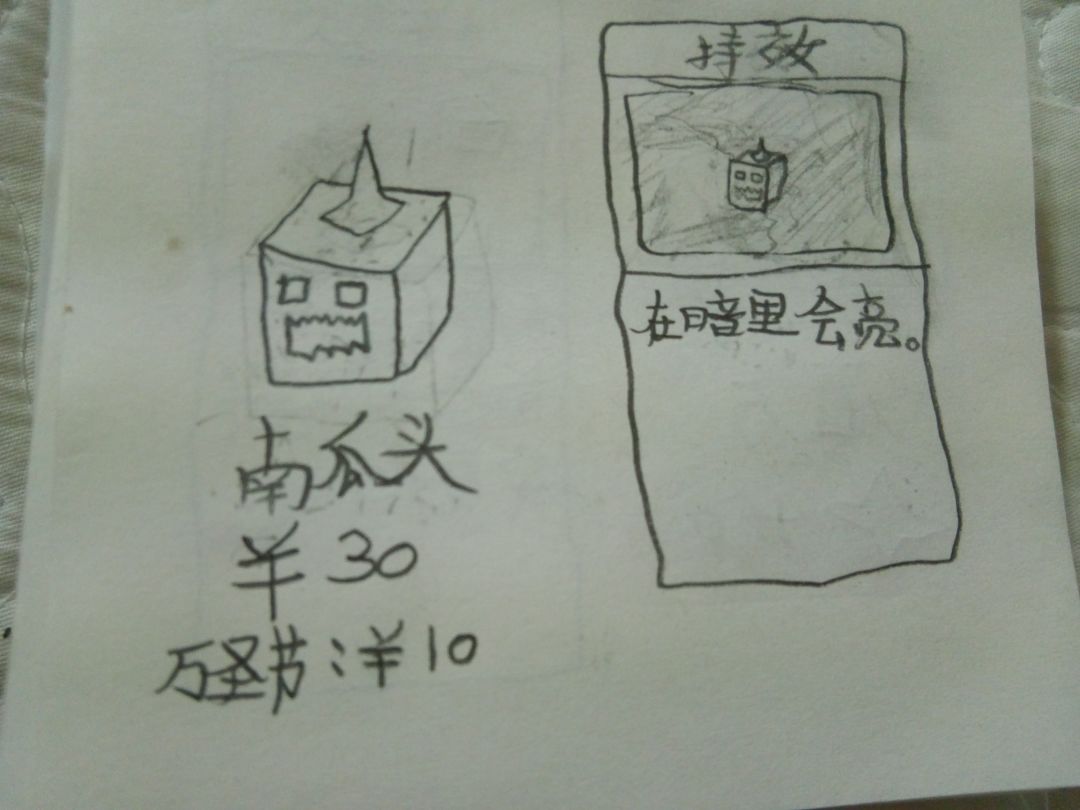 南瓜头
¥30
万圣节:¥10
持效
在暗里会亮。